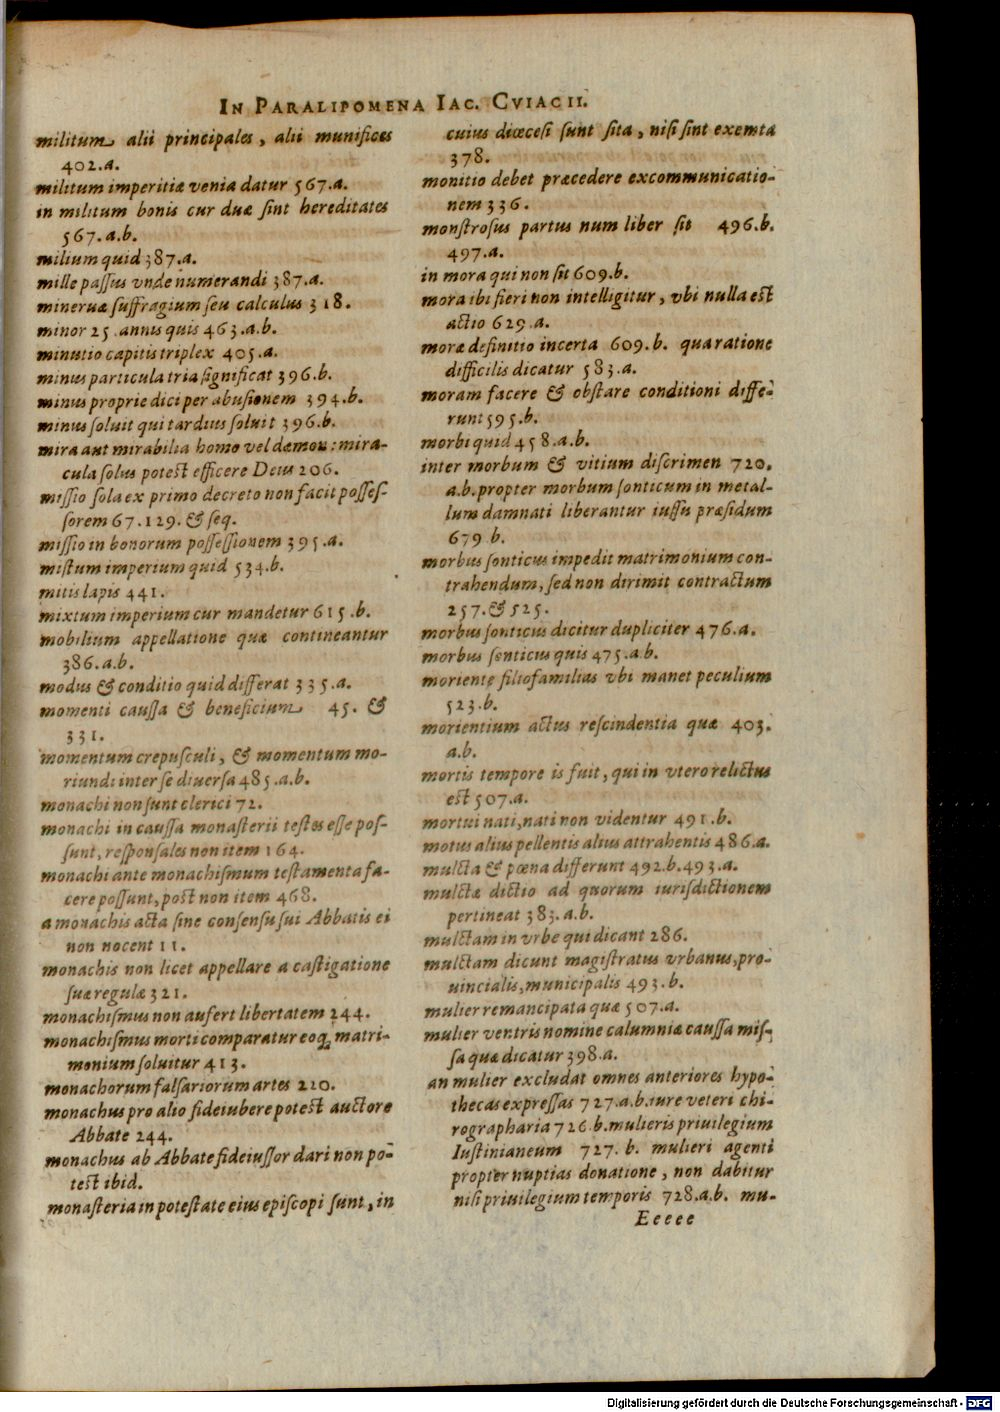 IN PARALIPOMENA IAC. CVIACII.
militum alii principales, alii munifices
402.a.
militum imperitiæ venia datur 567.a.
in militum bonis cur duæ ſint hereditates
567.a.b.
milium quid 387.a.
mille paſſus vnde numerandi 387.a.
mineruæ ſuffragium ſeu calculus 318.
minor 25 annis quis 463.a.b.
minutio capitis triplex 405.a.
minus particula tria ſignificat 396.b.
minus proprie dici per abuſionem 394.b.
minus ſoluit qui tardius ſoluit 396.b.
mira aut mirabilia homo vel dæmon: mira-
cula ſolus poteſt efficere Deus 206.
miſſio ſola ex primo decreto non facit poſſeſ-
ſorem 67.129. & ſeq.
miſſio in bonorum poſſeſſionem 395.a.
miſtum imperium quid 534.b.
mitis lapis 441.
mixtum imperium cur mandetur 615.b.
mobilium appellatione quæ contineantur
386.a.b.
modus & conditio quid differat 335.a.
momenti cauſſa & beneficium 45. &
331.
momentum crepuſculi, & momentum mo-
riundi inter ſe diuerſa 485.a.b.
monachi non ſunt clerici 72.
monachi in cauſſa monaſterii teſtes eſſe poſ-
ſunt, reſponſales non item 164.
monachi ante monachiſmum teſtamenta fa-
cere poſſunt, poſt non item 468.
a monachis acta ſine conſenſu ſui Abbatis ei
non nocent 11.
monachis non licet appellare a caſtigatione
ſuæ regulæ 321.
monachiſmus non aufert libertatem 244.
monachiſmus morti comparatur eoq; matri-
monium ſoluitur 413.
monachorum falſariorum artes 220.
monachus pro alio fideiubere poteſt auctore
Abbate 244.
monachus ab Abbate fideiuſſor dari non po-
teſt ibid.
monaſteria in poteſtate eius epiſcopi ſunt, in
cuius diœceſi ſunt ſita, niſi ſint exemta
378.
monitio debet præcedere excommunicatio-
nem 336.
monſtroſus partus num liber ſit 496.b.
497.a.
in mora qui non ſit 609.b.
mora ibi fieri non intelligitur, vbi nulla eſt
actio 629.a.
moræ definitio incerta 609.b. qua ratione
difficilis dicatur 583.a.
moram facere & obſtare conditioni diffe-
runt 595.b.
morbi quid 458.a.b.
inter morbum & vitium diſcrimen 720.
a.b. propter morbum ſonticum in metal-
lum damnati liberantur iuſſu præſidum
679 b.
morbus ſonticus impedit matrimonium con-
trahendum, ſed non dirimit contractum
257. & 525.
morbus ſonticus dicitur dupliciter 476.a.
morbus ſonticus quis 475.a.b.
moriente filiofamilias vbi manet peculium
523.b.
morientium actus reſcindentia quæ 403.
a.b.
mortis tempore is fuit, qui in vtero relictus
eſt 507.a.
mortui nati, nati non videntur 491.b.
motus alius pellentis alius attrahentis 486.a.
mulcta & pœna differunt 492.b.493.a.
mulctæ dictio ad quorum iurisdictionem
pertineat 383.a.b.
mulctam in vrbe qui dicant 286.
mulctam dicunt magiſtratus vrbanus, pro-
uincialis, municipalis 493.b.
mulier remancipata quæ 507.a.
mulier ventris nomine calumniæ cauſſa miſ-
ſa quæ dicatur 398.a.
an mulier excludat omnes anteriores hypo-
thecas expreſſas 727.a.b. iure veteri chi-
rographaria 726.b. mulieris priuilegium
Iuſtinianeum 727. b. mulieri agenti
propter nuptias donatione, non dabitur
niſi priuilegium temporis 728.a.b. mu-
Eeeee
Digitalisierung gefördert durch die Deutsche Forschungsgemeinschaft - DFG